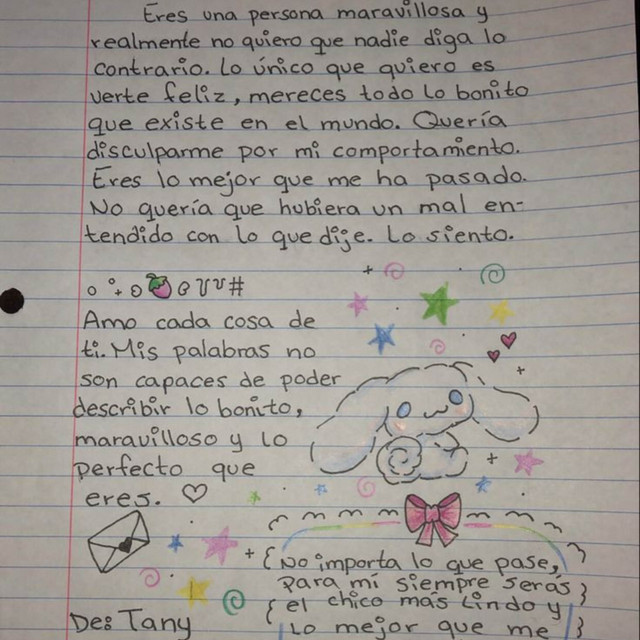 Eres una persona maravillosa y
realmente no quiero que nadie diga lo
contrario. Lo único que quiero es
verte feliz, mereces todo lo bonito
que existe en el mundo. Quería
disculparme por mi comportamiento.
Eres lo mejor que me ha pasado.
No quería que hubiera un mal en-
tendido con lo que dije. Lo siento.
Amo cada cosa de
ti. Mis palabras no
son capaces de poder
describir lo bonito,
maravilloso y lo
perfecto que
eres. ♡
De: Tany
No importa lo que pase,
para mi siempre serás
el chico más lindo y
lo mejor que me